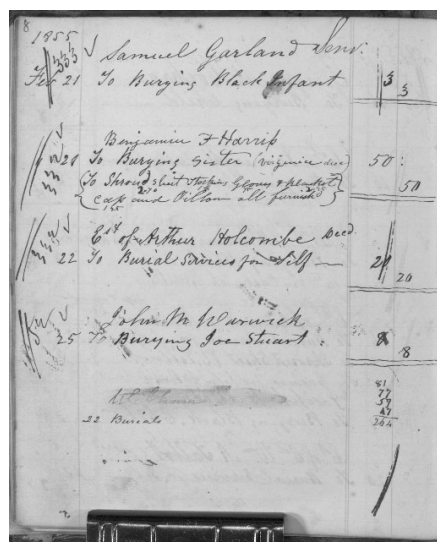 8
1855
333
Samuel Garland Senr.
Feb 21 To Burying Black Infant 3 3
Benjamin F Harris
21 To Burying Sister (Virginia decd) 50
To Shroud Shirt Gloves & Blanket 50
Cap and Pillow all furnished
Est of Arthur Holcombe Decd
22 To Burial Services for Self 20 20
John M Warwick
25 To Burying Joe Stuart 8 8
81
77
59
47
264
22 Burials